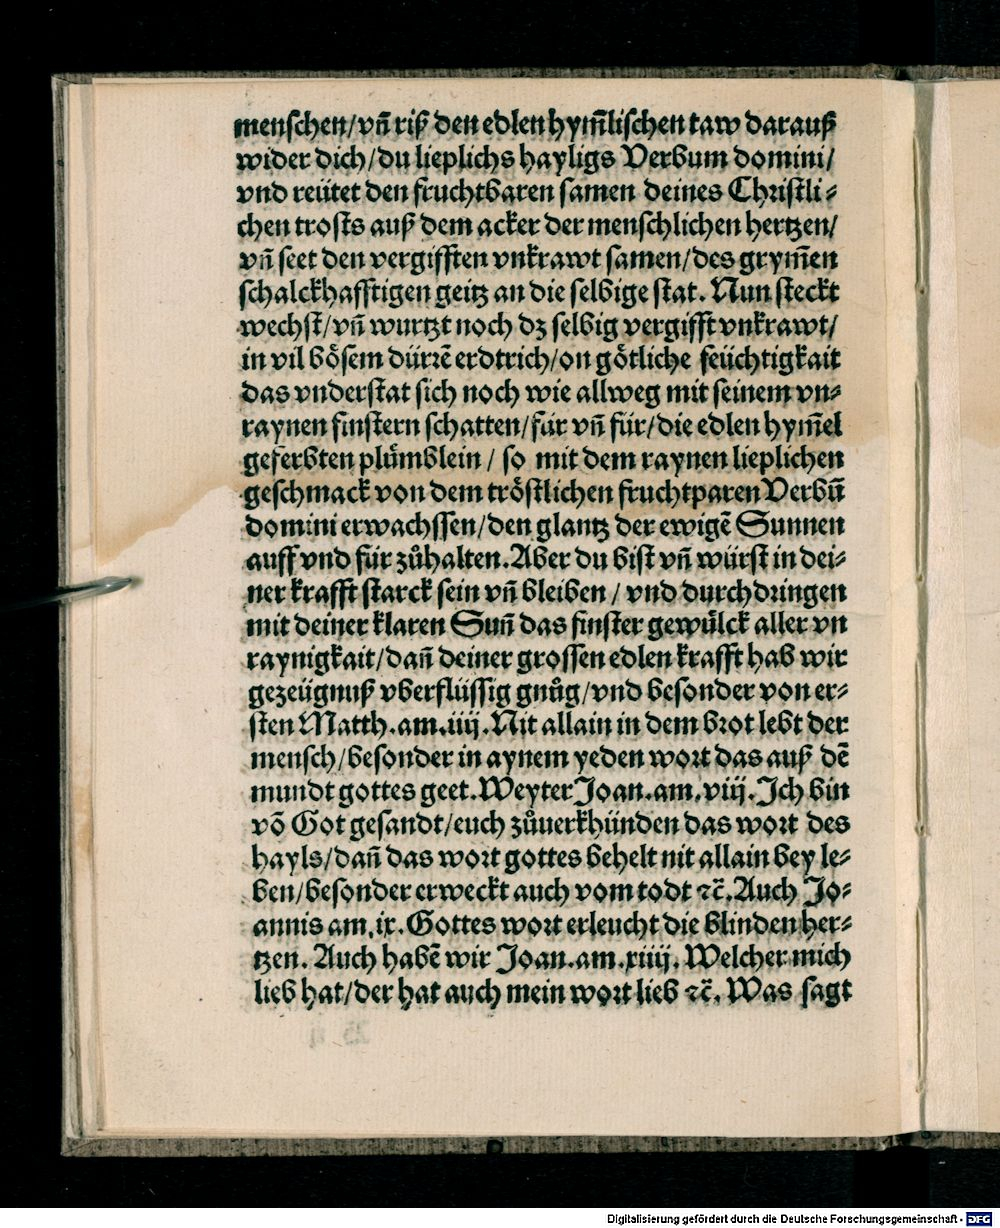 menschen/vñ riß den edlen hym̃lischen taw darauß
wider dich/du lieplichs hayligs Verbum domini/
vnd reütet den fruchtbaren samen deines Christli⸗
chen trosts auß dem acker der menschlichen hertzen/
vñ seet den vergifften vnkrawt samen/des grym̃en
schalckhafftigen geitz an die selbige stat. Nun steckt
wechst/vñ wurtzt noch dz selbig vergifft vnkrawt/
in vil bôsem dürrẽ erdtrich/on gôtliche feüchtigkait
das vnderstat sich noch wie allweg mit seinem vn⸗
raynen finstern schatten/für vñ für/die edlen hym̃el
geferbten plůmblein / so mit dem raynen lieplichen
geschmack von dem trôstlichen fruchtparen Verbũ
domini erwachssen/den glantz der ewigẽ Sunnen
auff vnd für zůhalten. Aber du bist vñ würst in dei⸗
ner krafft starck sein vñ bleiben / vnd durchdringen
mit deiner klaren Suñ das finster gewůlck aller vn
raynigkait/dañ deiner grossen edlen krafft hab wir
gezeügnuß vberflüssig gnůg/vnd besonder von er⸗
sten Matth.am.iiij. Nit allain in dem brot lebt der
mensch/besonder in aynem yeden wort das auß dẽ
mundt gottes geet. Weyter Joan.am.viij. Ich bin
võ Got gesandt/euch zůuerkhünden das wort des
hayls/dañ das wort gottes behelt nit allain bey le⸗
ben/besonder erweckt auch vom todt ꝛc̃. Auch Jo⸗
annis am.ix. Gottes wort erleucht die blinden her⸗
tzen. Auch habẽ wir Joan.am.xiiij. Welcher mich
lieb hat/der hat auch mein wort lieb ꝛc̃. Was sagt
Digitalisierung gefördert durch die Deutsche Forschungsgemeinschaft - DFG